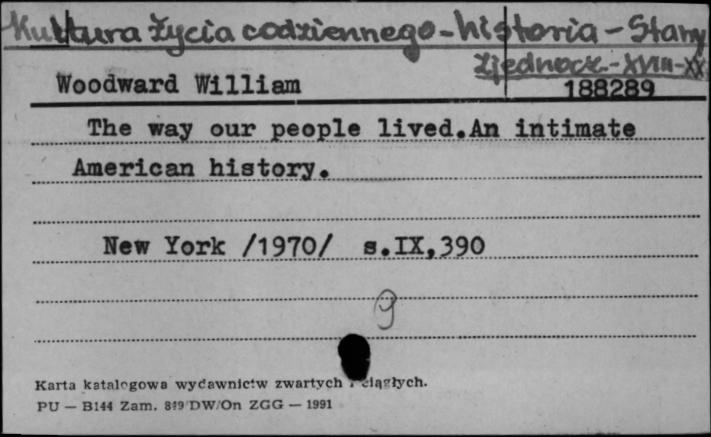 Kultura życia codziennego - historia - Stany
Zjednocz. - XVIII - XX
Woodward William
188289
The way our people lived.An intimate
American history.
New York /1970/ s.IX,390
9
Karta katalogowa wydawnictw zwartych i ciągłych.
PU — B144 Zam. 899 DW/On ZGG — 1991